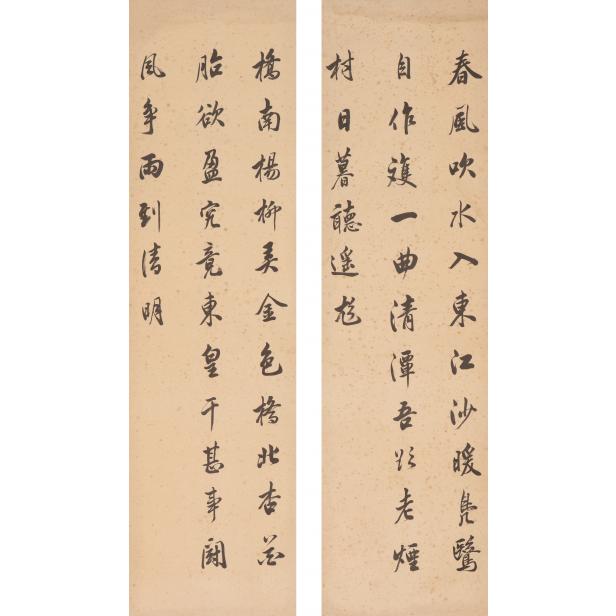 春風吹水入東江沙暖鳧鷖
自作雙一曲清潭吾欲老煙
村日暮聽遙尨
橋南楊柳金色橋北杏花
胎欲盈究竟東皇干甚事鬪
風爭雨到清明